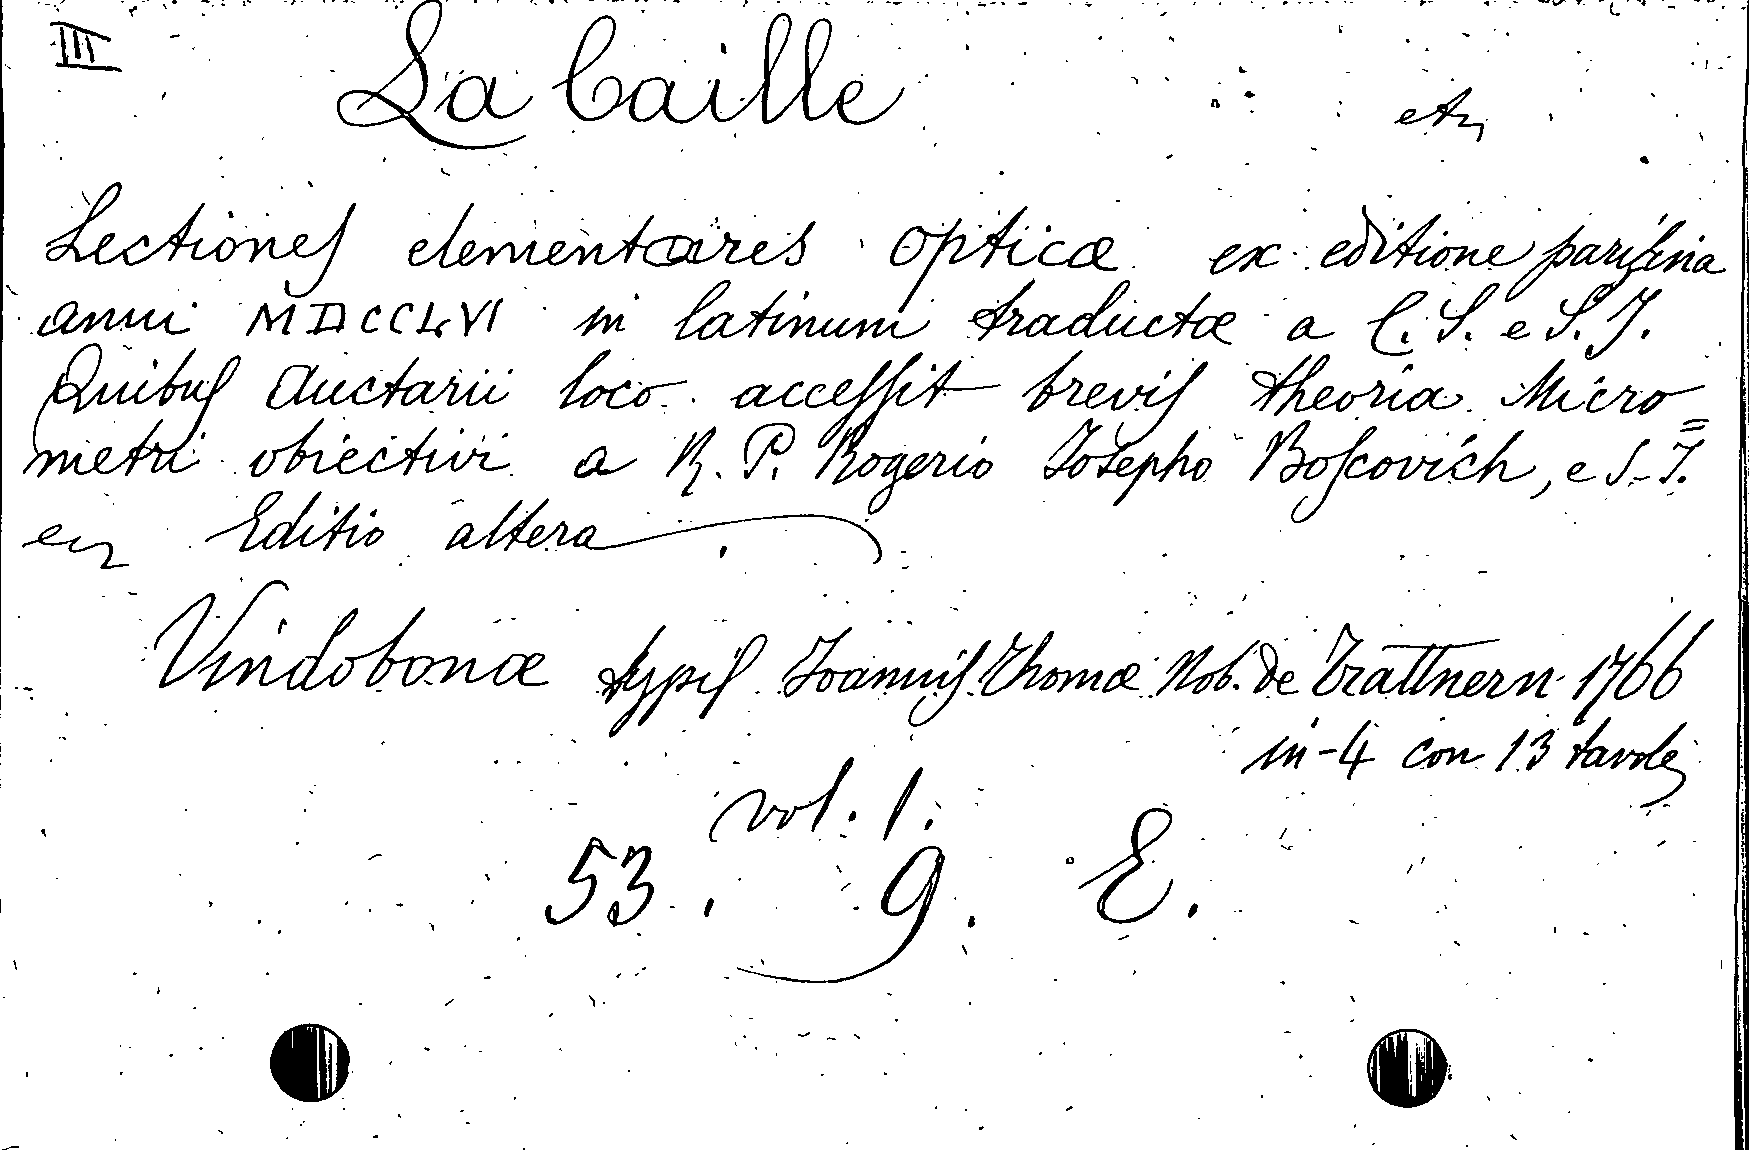 III
La Caille
Lectiones elementares opticæ ex editione parisina
anni MDCCLVI in latinum traductæ a C. S. e S. J.
Quibus Auctarii loco accessit brevis theoria Micro=
metri obiectivi a R. P. Rogerio Iosepho Boscovich, e S. J.
Editio altera
Vindobonæ typis Ioannis Thomæ Nob. de Trattnern 1766
in-4 con 13 tavole
vol. 1.
53. 9. E.